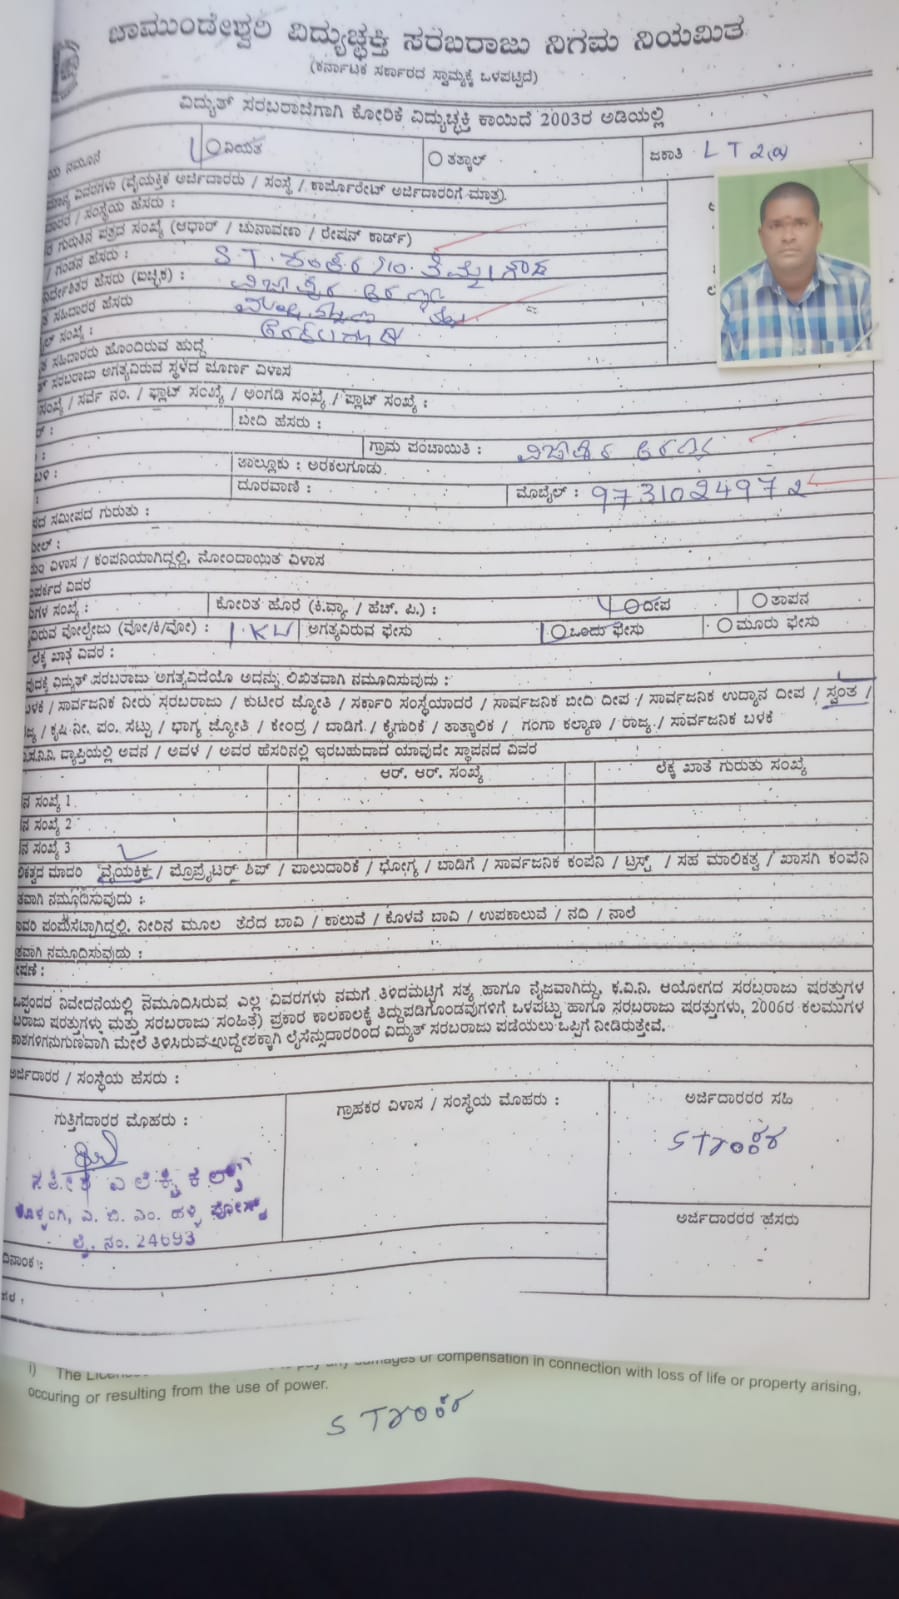 ಚಾಮುಂಡೇಶ್ವರಿ ವಿದ್ಯುಚ್ಛಕ್ತಿ ಸರಬರಾಜು ನಿಗಮ ನಿಯಮಿತ
(ಕರ್ನಾಟಕ ಸರ್ಕಾರದ ಸ್ವಾಮ್ಯಕ್ಕೆ ಒಳಪಟ್ಟಿದೆ)
ವಿದ್ಯುತ್ ಸರಬರಾಜಿಗಾಗಿ ಕೋರಿಕೆ ವಿದ್ಯುಚ್ಛಕ್ತಿ ಕಾಯಿದೆ 2003ರ ಅಡಿಯಲ್ಲಿ
ನಮೂನೆ ನಿಯತ ತತ್ಕಾಲ್ ಜಕಾತಿ LT 2(a)
ವಿವರಗಳು (ವೈಯಕ್ತಿಕ ಅರ್ಜಿದಾರರು / ಸಂಸ್ಥೆ / ಕಾರ್ಪೊರೇಟ್ ಅರ್ಜಿದಾರರಿಗೆ ಮಾತ್ರ)
/ ಸಂಸ್ಥೆಯ ಹೆಸರು :
ಗುರುತಿನ ಪತ್ರದ ಸಂಖ್ಯೆ (ಆಧಾರ್ / ಚುನಾವಣಾ / ರೇಷನ್ ಕಾರ್ಡ್)
/ ಗಂಡನ ಹೆಸರು : S.T.
ಹೆಸರು (ಐಚ್ಛಿಕ) :
ಸಹಿದಾರರ ಹೆಸರು
ಸಂಖ್ಯೆ :
ಸಹಿದಾರರು ಹೊಂದಿರುವ ಹುದ್ದೆ
ಸರಬರಾಜು ಅಗತ್ಯವಿರುವ ಸ್ಥಳದ ಪೂರ್ಣ ವಿಳಾಸ
ಸಂಖ್ಯೆ / ಸರ್ವೆ ನಂ. / ಫ್ಲಾಟ್ ಸಂಖ್ಯೆ / ಅಂಗಡಿ ಸಂಖ್ಯೆ / ಪ್ಲಾಟ್ ಸಂಖ್ಯೆ :
ಬೀದಿ ಹೆಸರು :
ಗ್ರಾಮ ಪಂಚಾಯಿತಿ :
ತಾಲ್ಲೂಕು : ಅರಕಲಗೂಡು
ದೂರವಾಣಿ : ಮೊಬೈಲ್ : 9731024972
ಸಮೀಪದ ಗುರುತು :
ವಿಳಾಸ / ಕಂಪನಿಯಾಗಿದ್ದಲ್ಲಿ, ನೋಂದಾಯಿತ ವಿಳಾಸ
ವಿವರ
ಸಂಖ್ಯೆ : ಕೋರಿತ ಹೊರೆ (ಕಿ.ವ್ಯಾ. / ಹೆಚ್. ಪಿ.) : ದೀಪ ತಾಪನ
ವೋಲ್ಟೇಜು (ವೋ/ಕಿ/ವೋ) : 1 KW ಅಗತ್ಯವಿರುವ ಫೇಸು ಒಂದು ಫೇಸು ಮೂರು ಫೇಸು
ಲೆಕ್ಕ ಖಾತೆ ವಿವರ :
ವಿದ್ಯುತ್ ಸರಬರಾಜು ಅಗತ್ಯವಿದೆಯೊ ಅದನ್ನು ಲಿಖಿತವಾಗಿ ನಮೂದಿಸುವುದು :
/ ಸಾರ್ವಜನಿಕ ನೀರು ಸರಬರಾಜು / ಕುಟೀರ ಜ್ಯೋತಿ / ಸರ್ಕಾರಿ ಸಂಸ್ಥೆಯಾದರೆ / ಸಾರ್ವಜನಿಕ ಬೀದಿ ದೀಪ / ಸಾರ್ವಜನಿಕ ಉದ್ಯಾನ ದೀಪ / ಸ್ವಂತ /
/ ಕೃಷಿ ನೀ. ಪಂ. ಸೆಟ್ಟು / ಭಾಗ್ಯ ಜ್ಯೋತಿ / ಕೇಂದ್ರ / ಬಾಡಿಗೆ / ಕೈಗಾರಿಕೆ / ತಾತ್ಕಾಲಿಕ / ಗಂಗಾ ಕಲ್ಯಾಣ / ರಾಜ್ಯ / ಸಾರ್ವಜನಿಕ ಬಳಕೆ
ವ್ಯಾಪ್ತಿಯಲ್ಲಿ ಅವನ / ಅವಳ / ಅವರ ಹೆಸರಿನಲ್ಲಿ ಇರಬಹುದಾದ ಯಾವುದೇ ಸ್ಥಾಪನದ ವಿವರ
ಆರ್. ಆರ್. ಸಂಖ್ಯೆ ಲೆಕ್ಕ ಖಾತೆ ಗುರುತು ಸಂಖ್ಯೆ
ಸಂಖ್ಯೆ 1
ಸಂಖ್ಯೆ 2
ಸಂಖ್ಯೆ 3
ಮಾದರಿ ವೈಯಕ್ತಿಕ / ಪ್ರೊಪ್ರೈಟರ್ ಶಿಪ್ / ಪಾಲುದಾರಿಕೆ / ಭೋಗ್ಯ / ಬಾಡಿಗೆ / ಸಾರ್ವಜನಿಕ ಕಂಪೆನಿ / ಟ್ರಸ್ಟ್ / ಸಹ ಮಾಲಿಕತ್ವ / ಖಾಸಗಿ ಕಂಪೆನಿ
ನಮ್ಮೂದಿಸುವುದು :
ಪಂಪುಸೆಟ್ಟಾಗಿದ್ದಲ್ಲಿ, ನೀರಿನ ಮೂಲ ತೆರೆದ ಬಾವಿ / ಕಾಲುವೆ / ಕೊಳವೆ ಬಾವಿ / ಉಪಕಾಲುವೆ / ನದಿ / ನಾಲೆ
ನಮ್ಮೂದಿಸುವುದು :
ನಿವೇದನೆಯಲ್ಲಿ ನಮೂದಿಸಿರುವ ಎಲ್ಲ ವಿವರಗಳು ನಮಗೆ ತಿಳಿದಮಟ್ಟಿಗೆ ಸತ್ಯ ಹಾಗೂ ನೈಜವಾಗಿದ್ದು, ಕ.ವಿ.ನಿ. ಆಯೋಗದ ಸರಬರಾಜು ಷರತ್ತುಗಳ
ಷರತ್ತುಗಳು ಮತ್ತು ಸರಬರಾಜು ಸಂಹಿತೆ) ಪ್ರಕಾರ ಕಾಲಕಾಲಕ್ಕೆ ತಿದ್ದುಪಡಿಗೊಂಡವುಗಳಿಗೆ ಒಳಪಟ್ಟು ಹಾಗೂ ಸರಬರಾಜು ಷರತ್ತುಗಳು, 2006ರ ಕಲಮುಗಳ
ಮೇಲೆ ತಿಳಿಸಿರುವ ಉದ್ದೇಶಕ್ಕಾಗಿ ಲೈಸೆನ್ಸುದಾರರಿಂದ ವಿದ್ಯುತ್ ಸರಬರಾಜು ಪಡೆಯಲು ಒಪ್ಪಿಗೆ ನೀಡಿರುತ್ತೇವೆ.
ಅರ್ಜಿದಾರರ / ಸಂಸ್ಥೆಯ ಹೆಸರು :
ಗುತ್ತಿಗೆದಾರರ ಮೊಹರು : ಗ್ರಾಹಕರ ವಿಳಾಸ / ಸಂಸ್ಥೆಯ ಮೊಹರು : ಅರ್ಜಿದಾರರರ ಸಹಿ
ಸತೀಶ ಎಲೆಕ್ಟ್ರಿಕಲ್ಸ್
ಎ. ಬಿ. ಎಂ. ಹಳ್ಳಿ ಪೋಸ್ಟ್
ಲೈ. ನಂ. 24693
ಅರ್ಜಿದಾರರರ ಹೆಸರು
ದಿನಾಂಕ :
damages or compensation in connection with loss of life or property arising,
occuring or resulting from the use of power.